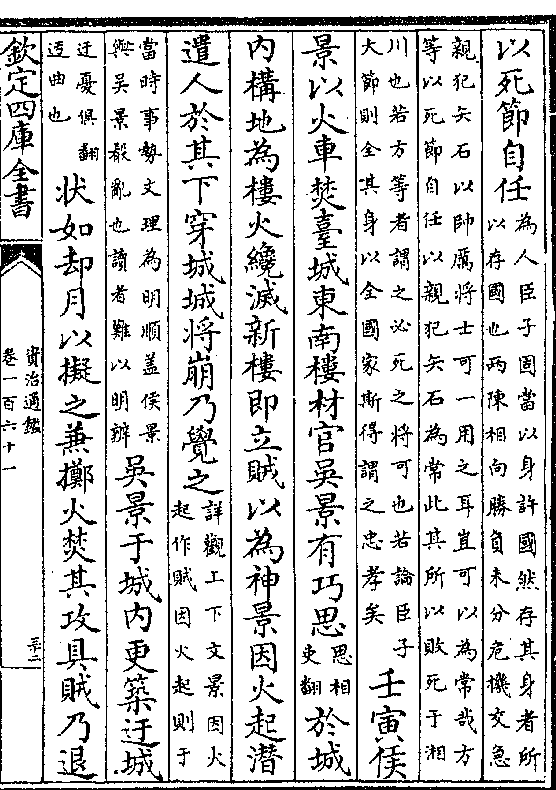 以死節自任
為人臣子固當以身許國然存其身者所
以存國也兩陳相向勝負未分危機交急
親犯矢石以帥厲將士可一用之耳豈可以為常哉方
等以死節自任以親犯矢石為常此其所以敗死于湘
川也若方等者謂之必死之將可也若論臣子
大節則全其身以全國家斯得謂之忠孝矣
壬寅侯
景以火車焚臺城東南樓材官吳景有巧思
思相
吏翻
於城
內構地為樓火纔滅新樓即立賊以為神景因火起潛
遣人於其下穿城城將崩乃覺之
詳觀上下文景因火
起作賊因火起則于
當時事勢文理為明順盖侯景
與吳景殽亂也讀者難以明辨
吳景于城內更築迂城
迂憂俱翻
迂曲也
状如却月以擬之兼擲火焚其攻具賊乃退
欽定四庫全書
資治通鑑
卷一百六十一
三十二